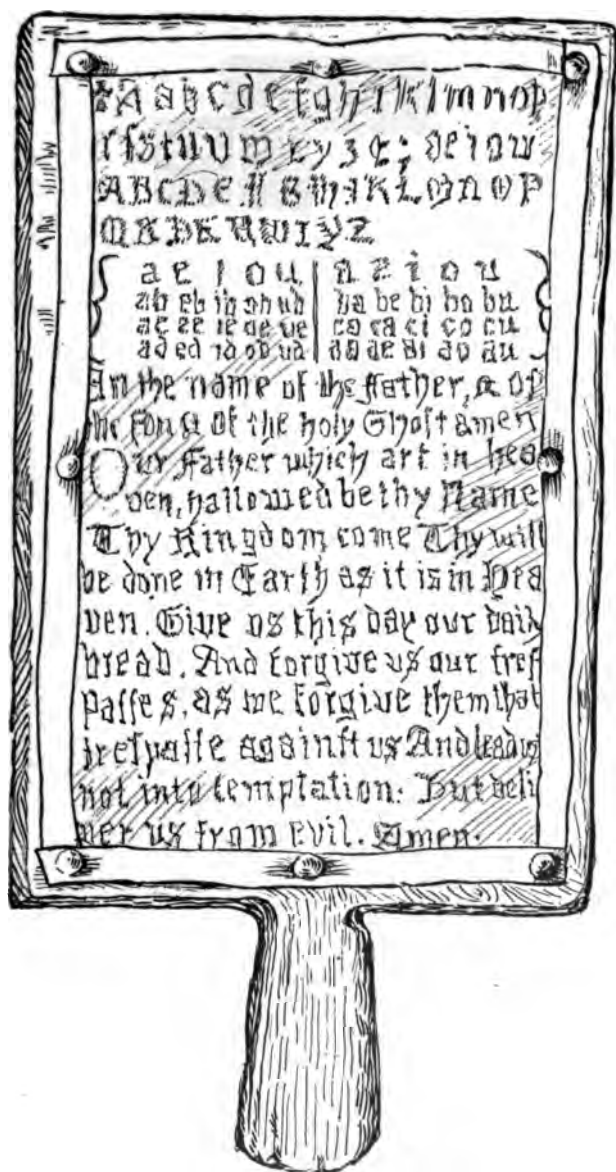 ✠A a b c d e f g h i k l m n o p
r ſ s t u v w x y z &; a e i o u
A B C D E F G H I K L M N O P
Q R S T U W X Y Z
a e i o u | a e i o u
ab eb ib ob ub | ba be bi bo bu
ac ec ic oc uc | ca ce ci co cu
ad ed id od ud | da de di do du
In the name of the Father, & of
the Son & of the holy Ghoſt amen
Our Father which art in hea
ven, hallowed be thy Name
Thy Kingdom come Thy will
be done in Earth as it is in Hea
ven. Give us this day our daily
bread. And forgive us our treſ
paſſes, as we forgive them that
treſpaſſe againſt us And lead us
not into temptation: But deli
ver us from Evil. Amen.